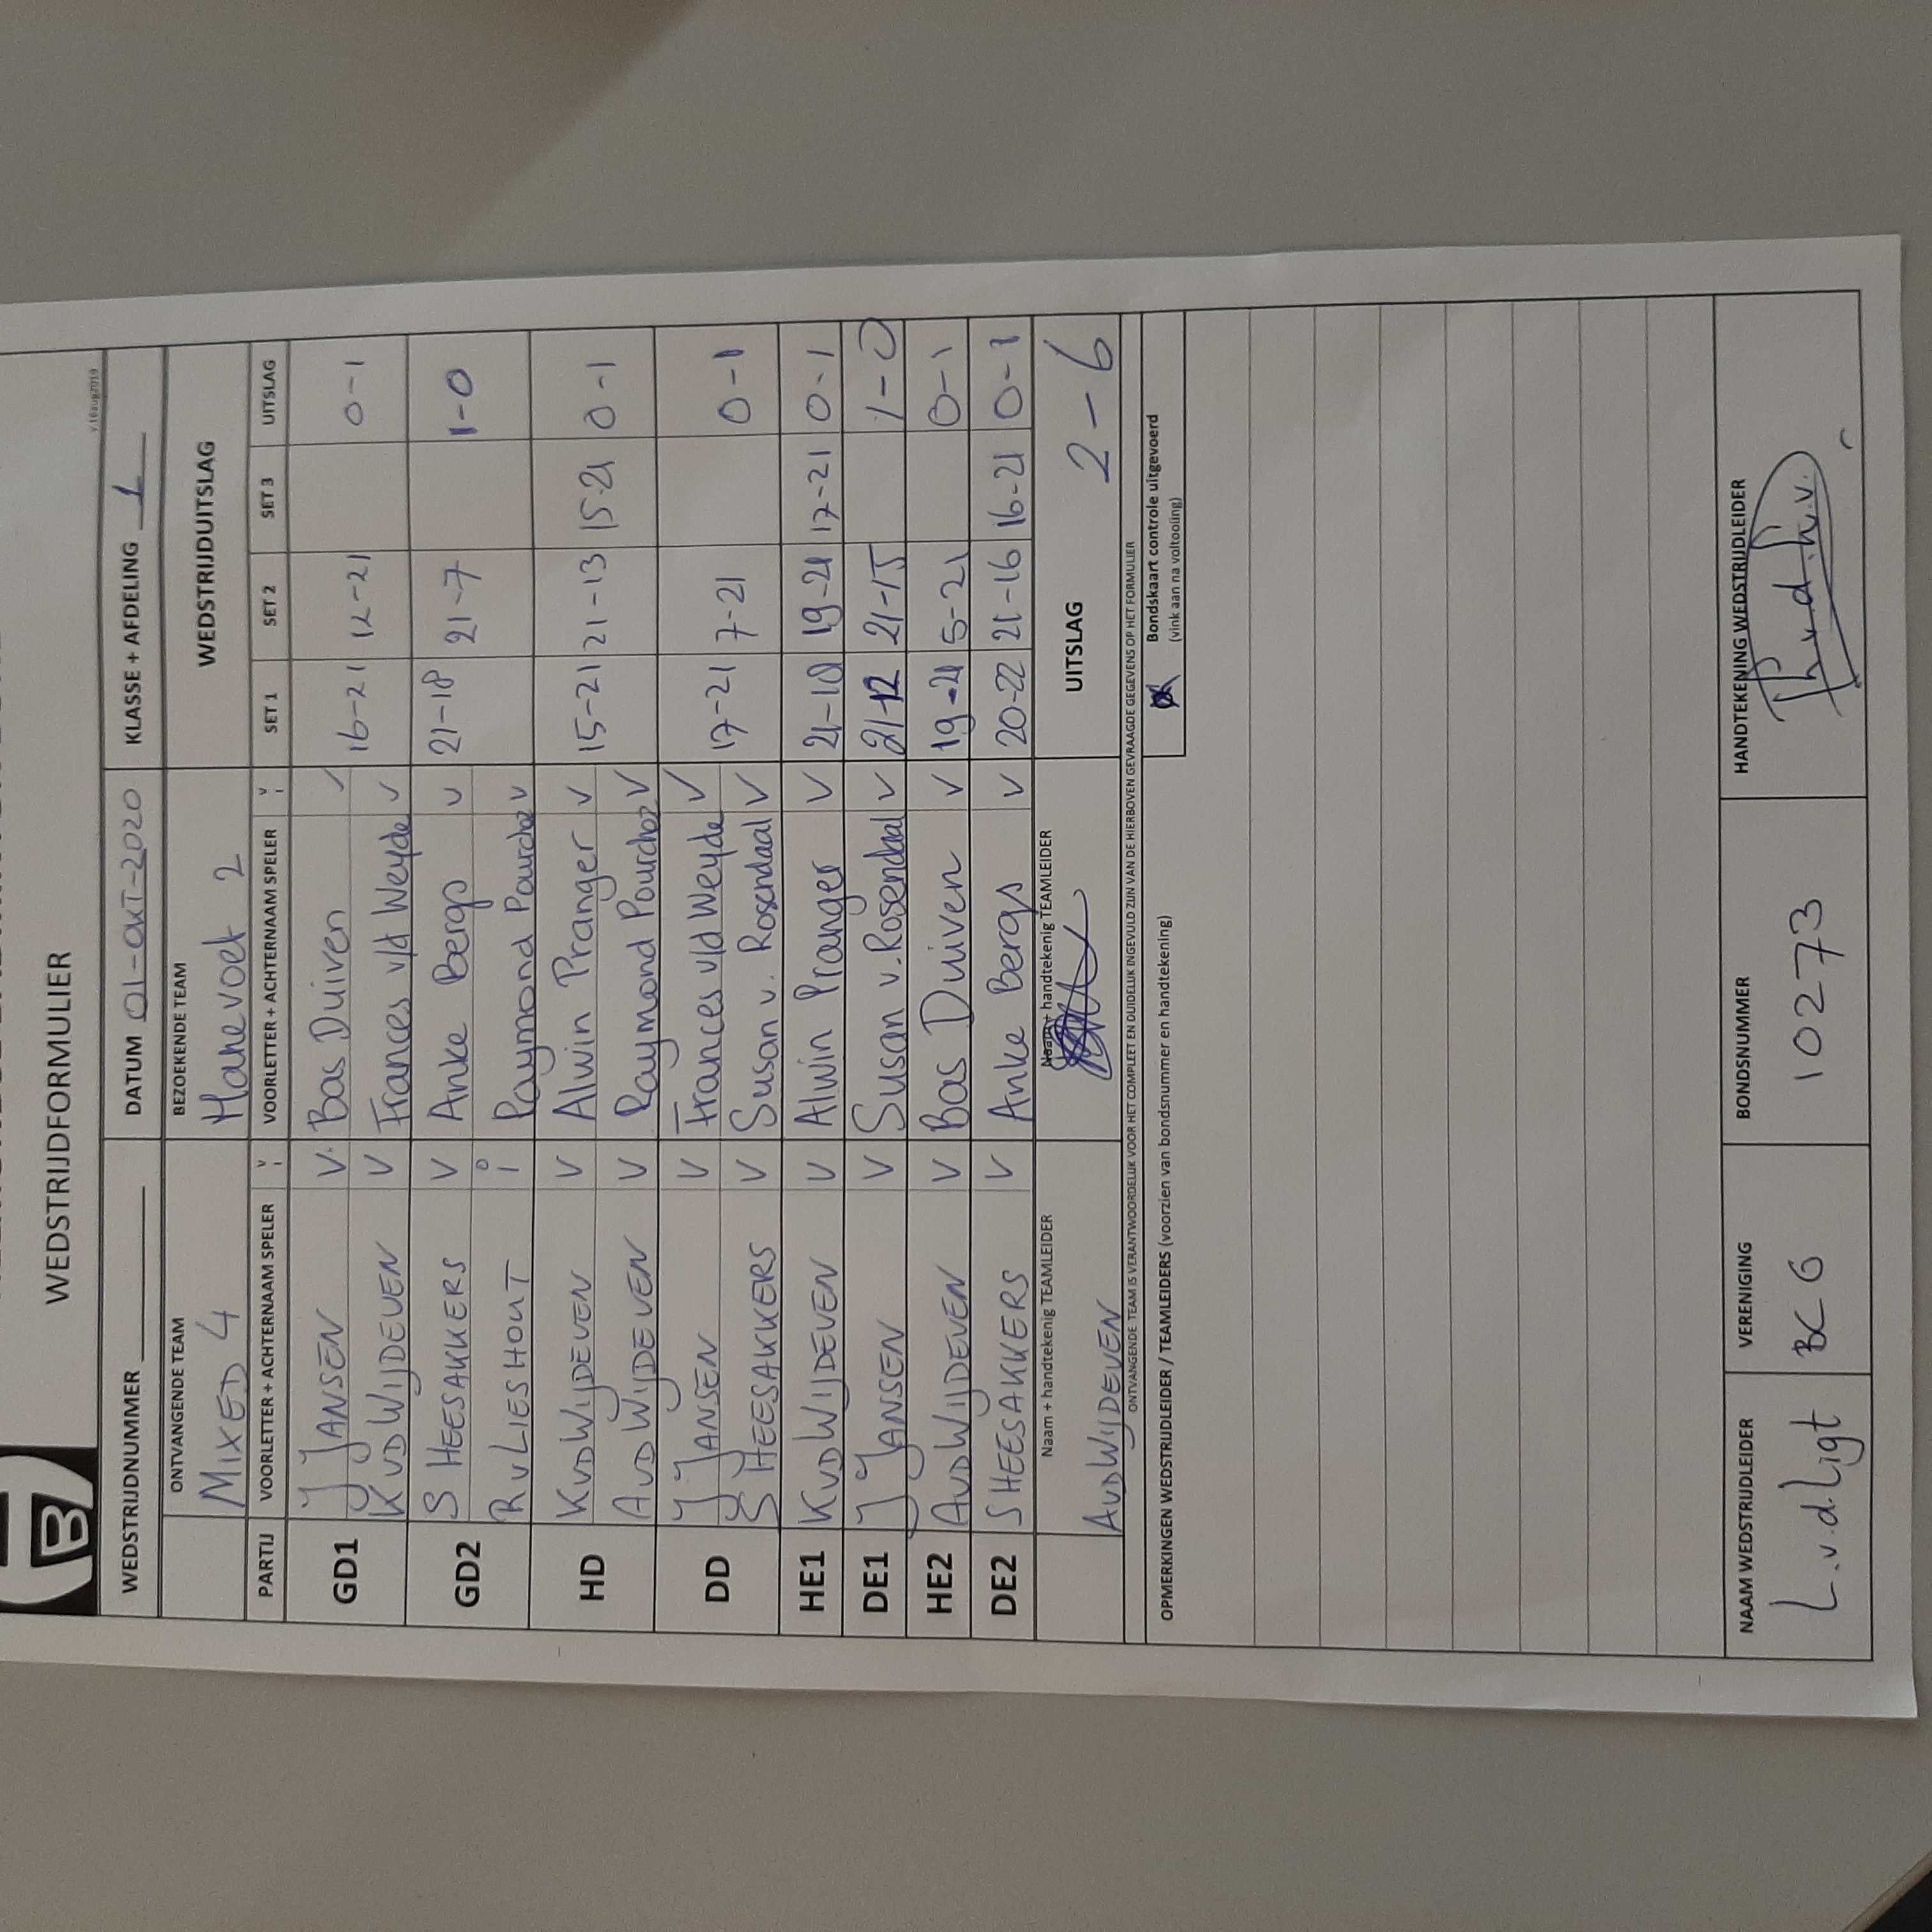 WEDSTRIJDFORMULIER
v.16aug2019
WEDSTRIJDNUMMER DATUM 01-OKT-2020 KLASSE + AFDELING 1
ONTVANGENDE TEAM BEZOEKENDE TEAM WEDSTRIJDUITSLAG
MIXED 4 Hanevoet 2
PARTIJ VOORLETTER + ACHTERNAAM SPELER V i VOORLETTER + ACHTERNAAM SPELER V i SET 1 SET 2 SET 3 UITSLAG
GD1 J JANSEN V Bas Duiven V
KVDWIJDEVEN V Frances v/d Weyde V 16-21 12-21 0-1
GD2 S HEESAKKERS V Anke Bergs V 21-18 21-7 1-0
RVLIESHOUT i Raymond Pourchez V
HD KVDWIJDEVEN V Alwin Pranger V 15-21 21-13 15-21 0-1
AVDWIJDEVEN V Raymond Pourchez V
DD J JANSEN V Frances v/d Weyde V
S HEESAKKERS V Susan v. Rosendaal V 17-21 7-21 0-1
HE1 KVDWIJDEVEN V Alwin Pranger V 21-18 19-21 17-21 0-1
DE1 J JANSEN V Susan v. Rosendaal V 21-12 21-15 1-0
HE2 AVDWIJDEVEN V Bas Duiven V 19-21 5-21 0-1
DE2 SHEESAKKERS V Anke Bergs V 20-22 21-16 16-21 0-1
Naam + handtekenig TEAMLEIDER Naam + handtekenig TEAMLEIDER UITSLAG 2-6
AVDWIJDEVEN
ONTVANGENDE TEAM IS VERANTWOORDELIJK VOOR HET COMPLEET EN DUIDELIJK INGEVULD ZIJN VAN DE HIERBOVEN GEVRAAGDE GEGEVENS OP HET FORMULIER
OPMERKINGEN WEDSTRIJDLEIDER / TEAMLEIDERS (voorzien van bondsnummer en handtekening) Bondskaart controle uitgevoerd
(vink aan na voltooiing)
NAAM WEDSTRIJDLEIDER VERENIGING BONDSNUMMER HANDTEKENING WEDSTRIJDLEIDER
L.v.d.Ligt BCG 10273